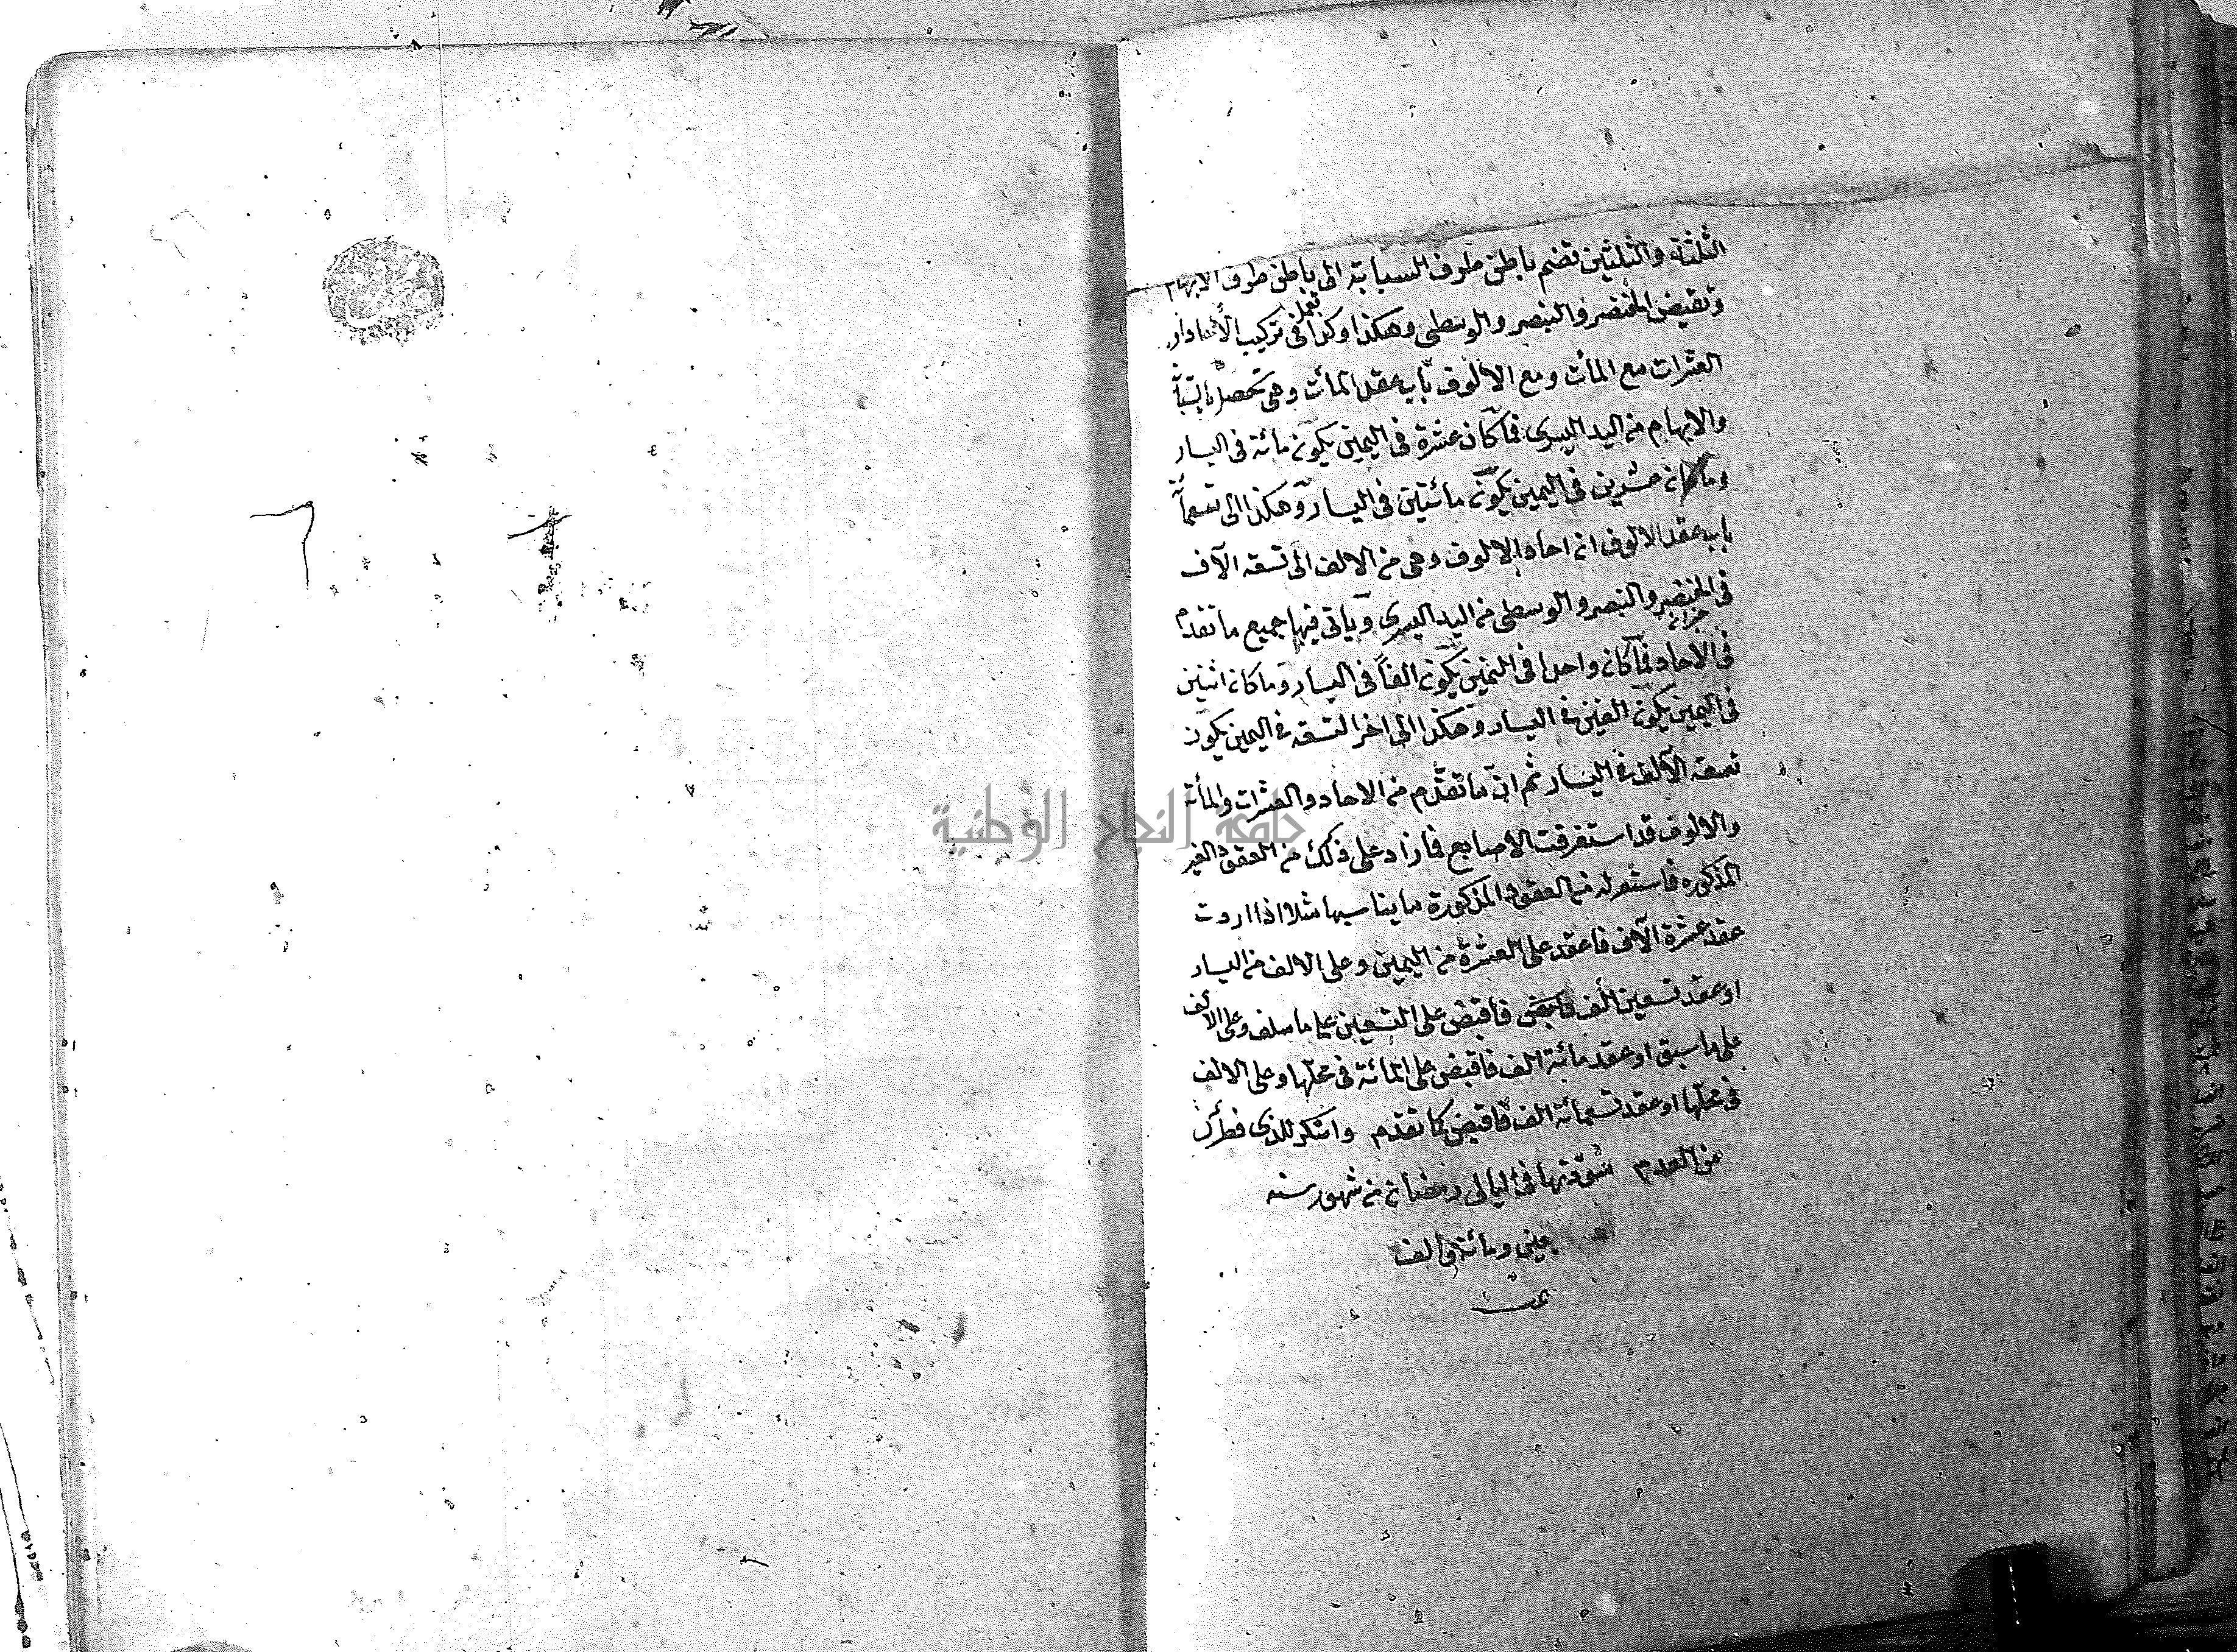 الثلثة والثلثين تضم باطن طرف السبابة الى باطن طرف الابهام
وتقبض الخنصر والبنصر والوسطى وهكذا وكذا تفعل في تركيب الأحاد او
العشرات مع المأت ومع الالوف باب عقد المأت وهي تحصل بالسبابة
والابهام من اليد اليسرى فما كان عشرة في اليمين يكون مائة في اليسار
وما كان عشرين في اليمين يكون مائتين في اليسار وهكذا الى تسعمائة
باب عقد الالوف ان احاد الالوف وهي من الالف الى تسعه الآف
في الخنصر والبنصر والوسطى من اليد اليسرى وياتي فيها جميع ما تقدم
في الاحاد فما كان واحدا في اليمين يكون الفاً في اليسار وما كان اثنين
في اليمين يكون الفين في اليسار وهكذا الى اخر التسعه في اليمين يكون
تسعه الآلف في اليسار ثم ان ما تقدّم من الاحاد والعشرات والمأت
والالوف قد استغرقت الاصابع فما زاد على ذلك من العقود الغير
المذكوره فاستعر له من العقود المذكورة ما يناسبها مثلا اذا اردت
عقد عشرة الآف فاعقد على العشرة من اليمين وعلى الالف من اليسار
او عقد تسعين الف فاقبض على التسعين على ما سلف وعلى الالف
على ما سبق او عقد مائة الف فاقبض على المائة في محلها وعلى الالف
في محلها او عقد تسعمائة الف فاقبض كما تقدم واشكر للذي فطرك
من العدم سوّدتها في ليالي رمضان من شهور سنه
ومائة والف
تمت
جامعة النجاح الوطنية